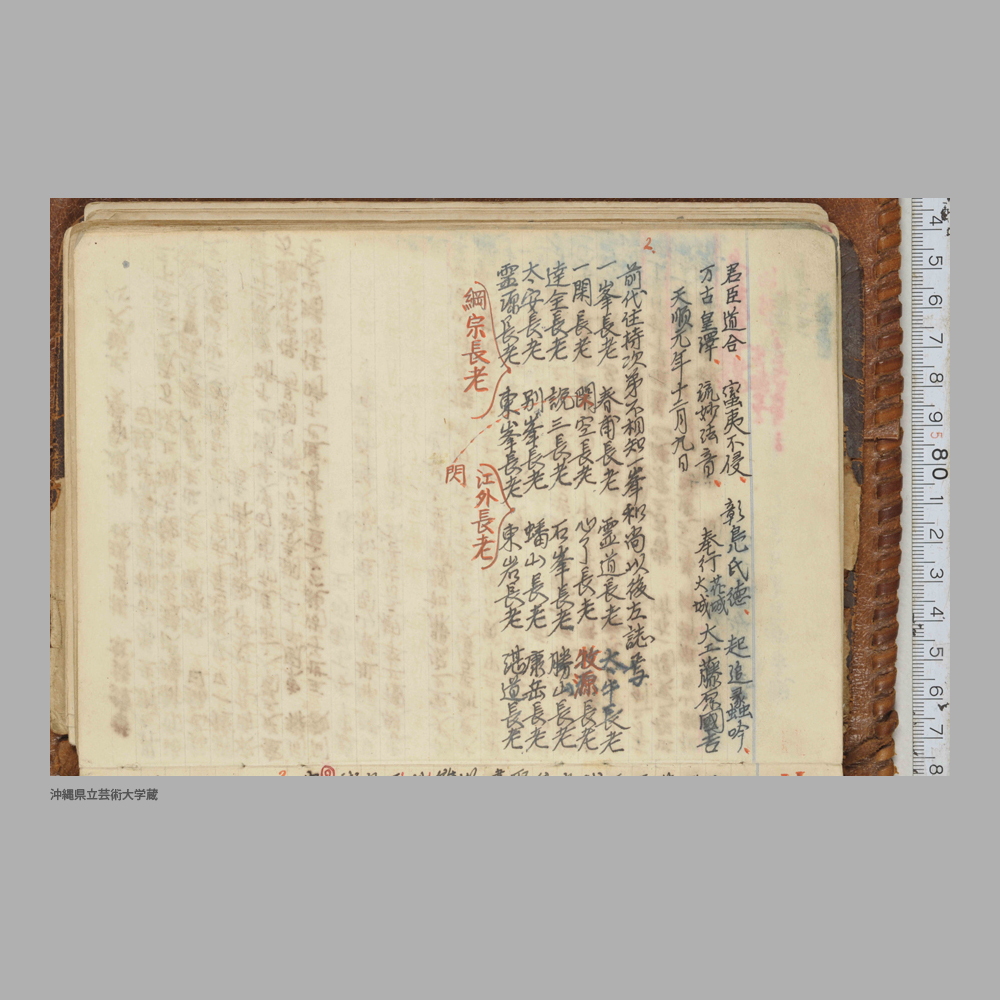 君臣道合、蛮夷不侵、彰鳧氏徳、起追蠡吟、
万古皇澤、流妙法音、
奉行
花城
大城
大工藤原國吉
天順元年十二月九日
2.
前代住持次第不相知一峯和尚以後左誌焉
一峯長老 春甫長老 霊道長老 太年長老
一閑長老 空長老 心了長老 牧源長老
達全長老 説三長老 石峯長老 勝山長老
太安長老 別峯長老 蟠山長老 康岳長老
霊源長老 東峯長老 東岩長老 湛道長老
綱宗長老
江外長老
閃
4 5 6 7 8 9 5 80 1 2 3 4 5 6 7 8
沖縄県立芸術大学蔵